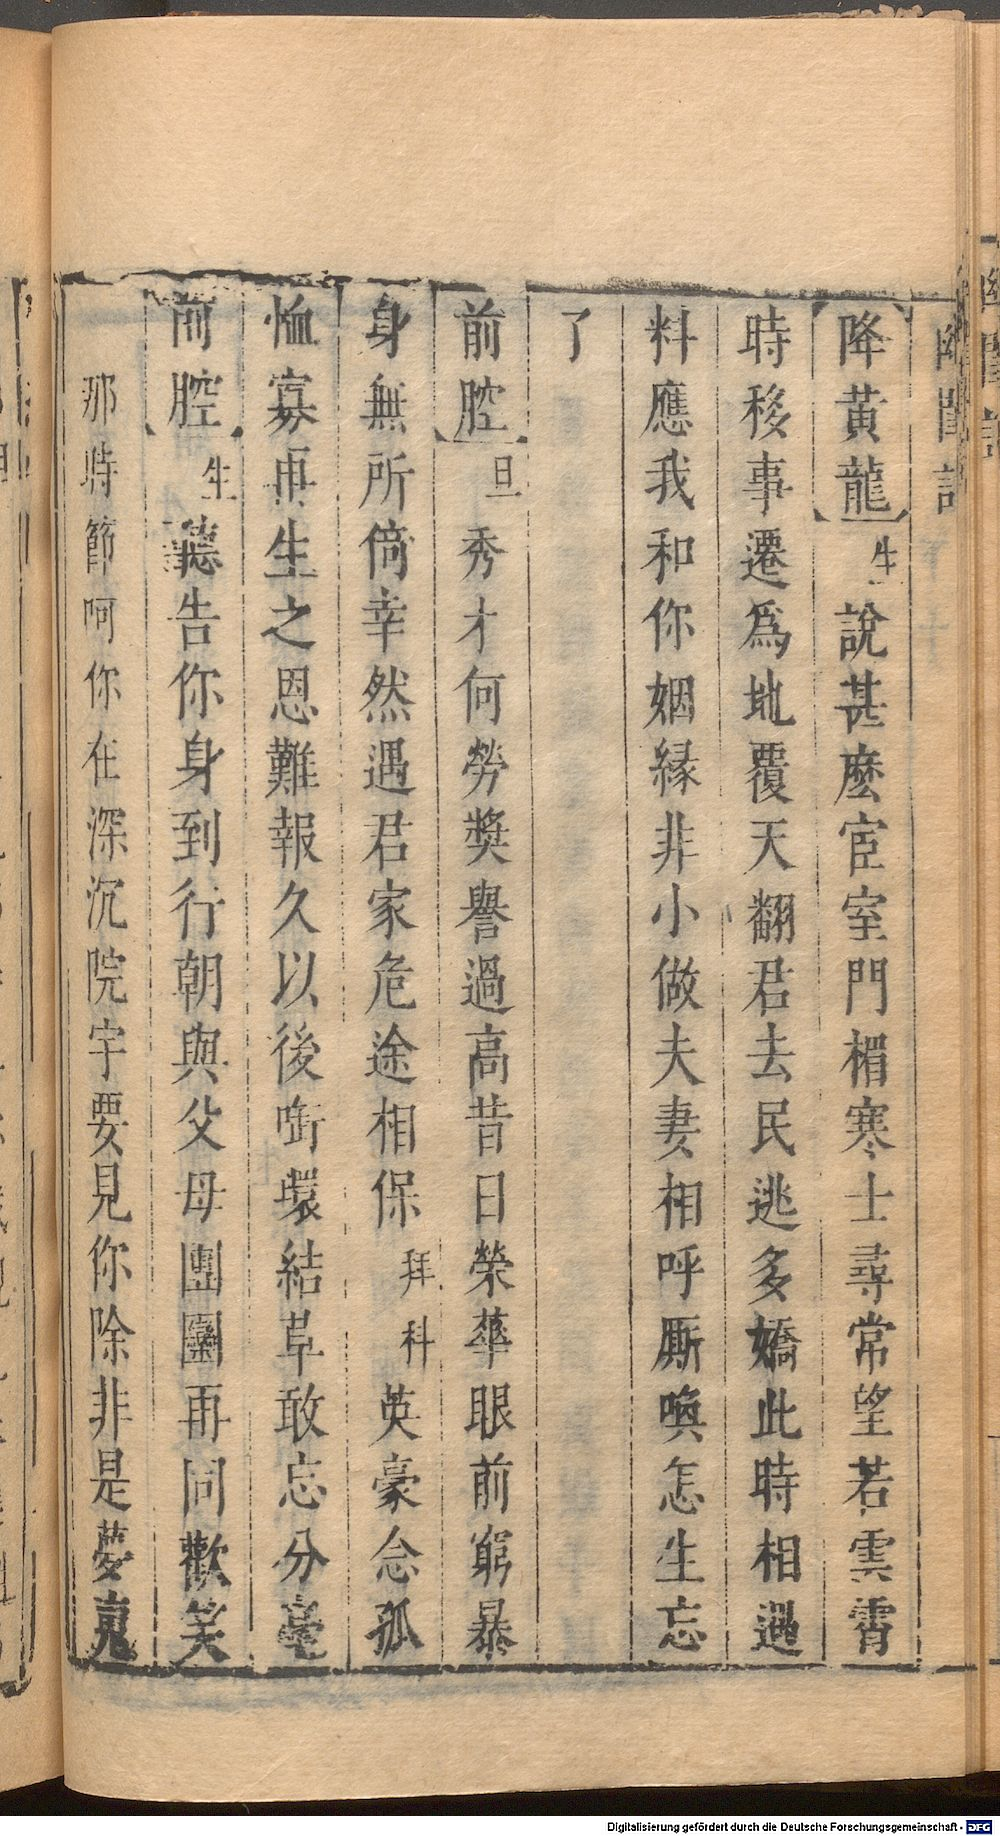 幽閨記
降黃龍 生 說甚麽宦室門楣寒士尋常望若雲霄
時移事遷爲地覆天翻君去民逃多嬌此時相遇
料應我和你姻緣非小做夫妻相呼厮喚怎生忘
了
前腔 旦 秀才何勞獎譽過高昔日榮華眼前窮暴
身無所倚幸然遇君家危途相保 拜科 英豪念孤
恤寡再生之恩難報久以後啣環結草敢忘分毫
前腔 生 聽告你身到行朝與父母團圞再同歡笑
那時節呵你在深沉院宇要見你除非是夢裏
Digitalisierung gefördert durch die Deutsche Forschungsgemeinschaft - DFG